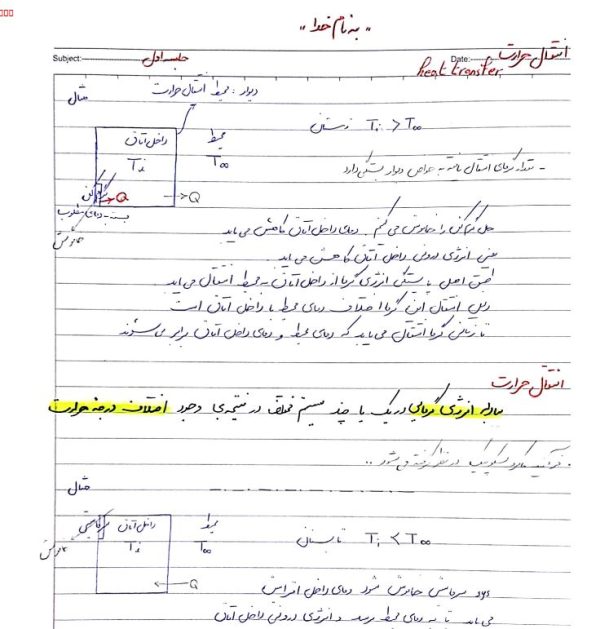 "به نام خدا"
انتقال حرارت
Subject: جلسه اول Date:
heat transfer
دیوار: محیط انتقال حرارت
مثال
داخل اتاق محیط Ti > T∞ زمستان
Ti T∞
- مقدار گرمای انتقال یافته به خواص دیوار بستگی دارد
Q Q
دمای مطلوب
خاموش
حال گرمکن را خاموش می کنیم. دمای داخل اتاق کاهش می یابد
یعنی انرژی درونی داخل اتاق کاهش می یابد
طبق اصل بقای انرژی گرما از داخل اتاق به محیط انتقال می یابد
دلیل انتقال این گرما اختلاف دمای محیط با داخل اتاق است
تا زمانی گرما انتقال می یابد که دمای محیط و دمای داخل اتاق برابر می شوند
انتقال حرارت
مبادله انرژی گرمایی در یک یا چند سیستم مختلف در نتیجه ی وجود اختلاف درجه حرارت
در نظر گرفته می شود ..
مثال
داخل اتاق محیط Ti < T∞ تابستان
Ti T∞
خاموش
Q
خاموش شود دمای داخل افزایش
می یابد تا به دمای محیط برسد و انرژی درونی داخل اتاق